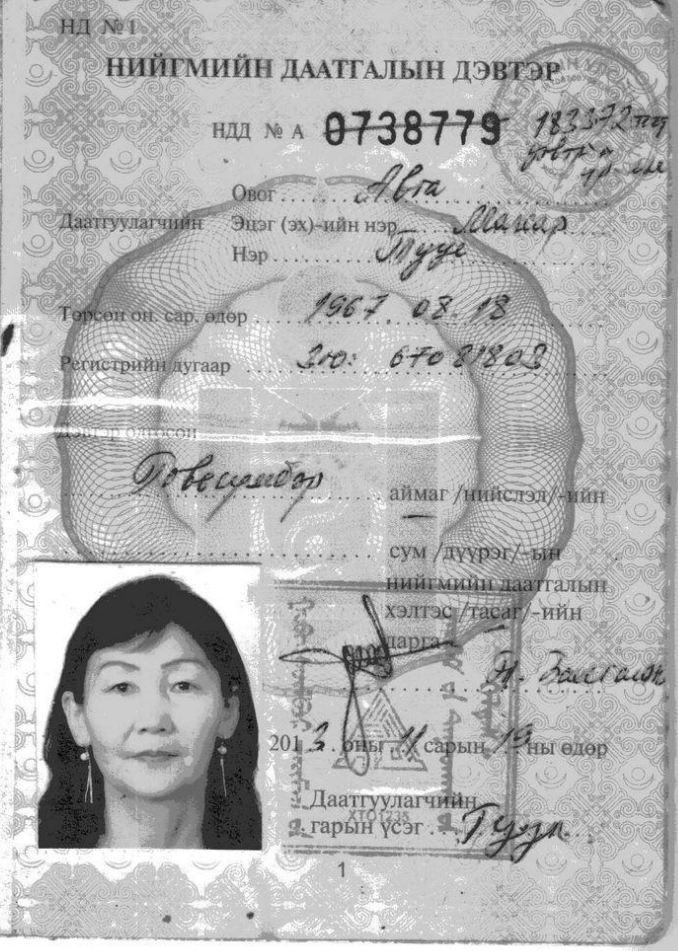 НД №1
НИЙГМИЙН ДААТГАЛЫН ДЭВТЭР
НДД № А 0738779 183372
Овог Авга
Даатгуулагчийн Эцэг (эх)-ийн нэр
Нэр
Төрсөн он. сар. өдөр 1967 08. 18
Регистрийн дугаар 67081803
Дэвтэр олгосон
Говьсүмбэр аймаг /нийслэл/-ийн
сум /дүүрэг/-ын
нийгмийн даатгалын
хэлтэс /тасаг/-ийн
дарга
2013 оны 11 сарын 19 ны өдөр
Даатгуулагчийн
ХТО1235
гарын үсэг
1